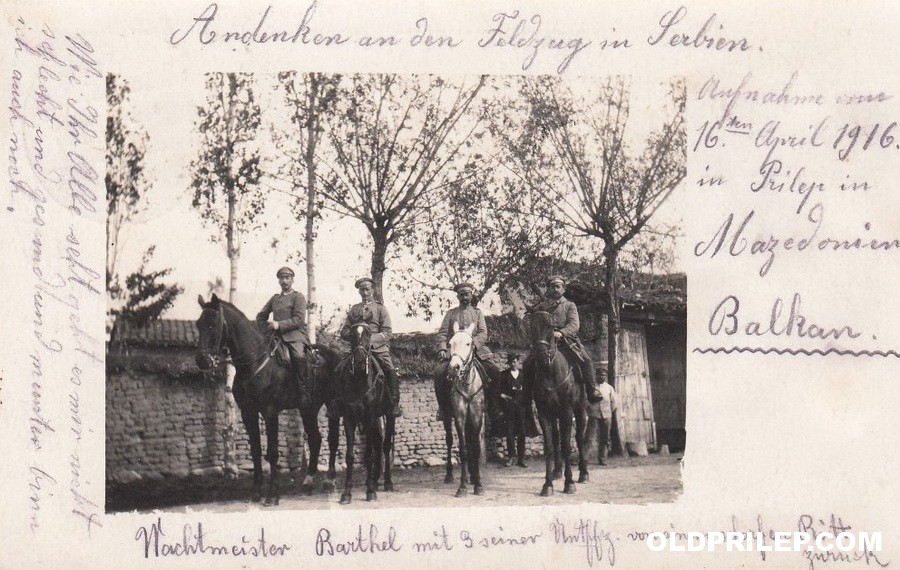 Andenken an den Feldzug in Serbien.
Aufnahme vom
16.ten April 1916.
in Prilep in
Mazedonien
Balkan.
Wie Ihr Alle seht geht es mir nicht
schlecht und gesund und munter bin
ich auch noch.
Wachtmeister Barthel mit 3 seiner Untffz. von einem Ritt
zurück
OLDPRILEP.COM